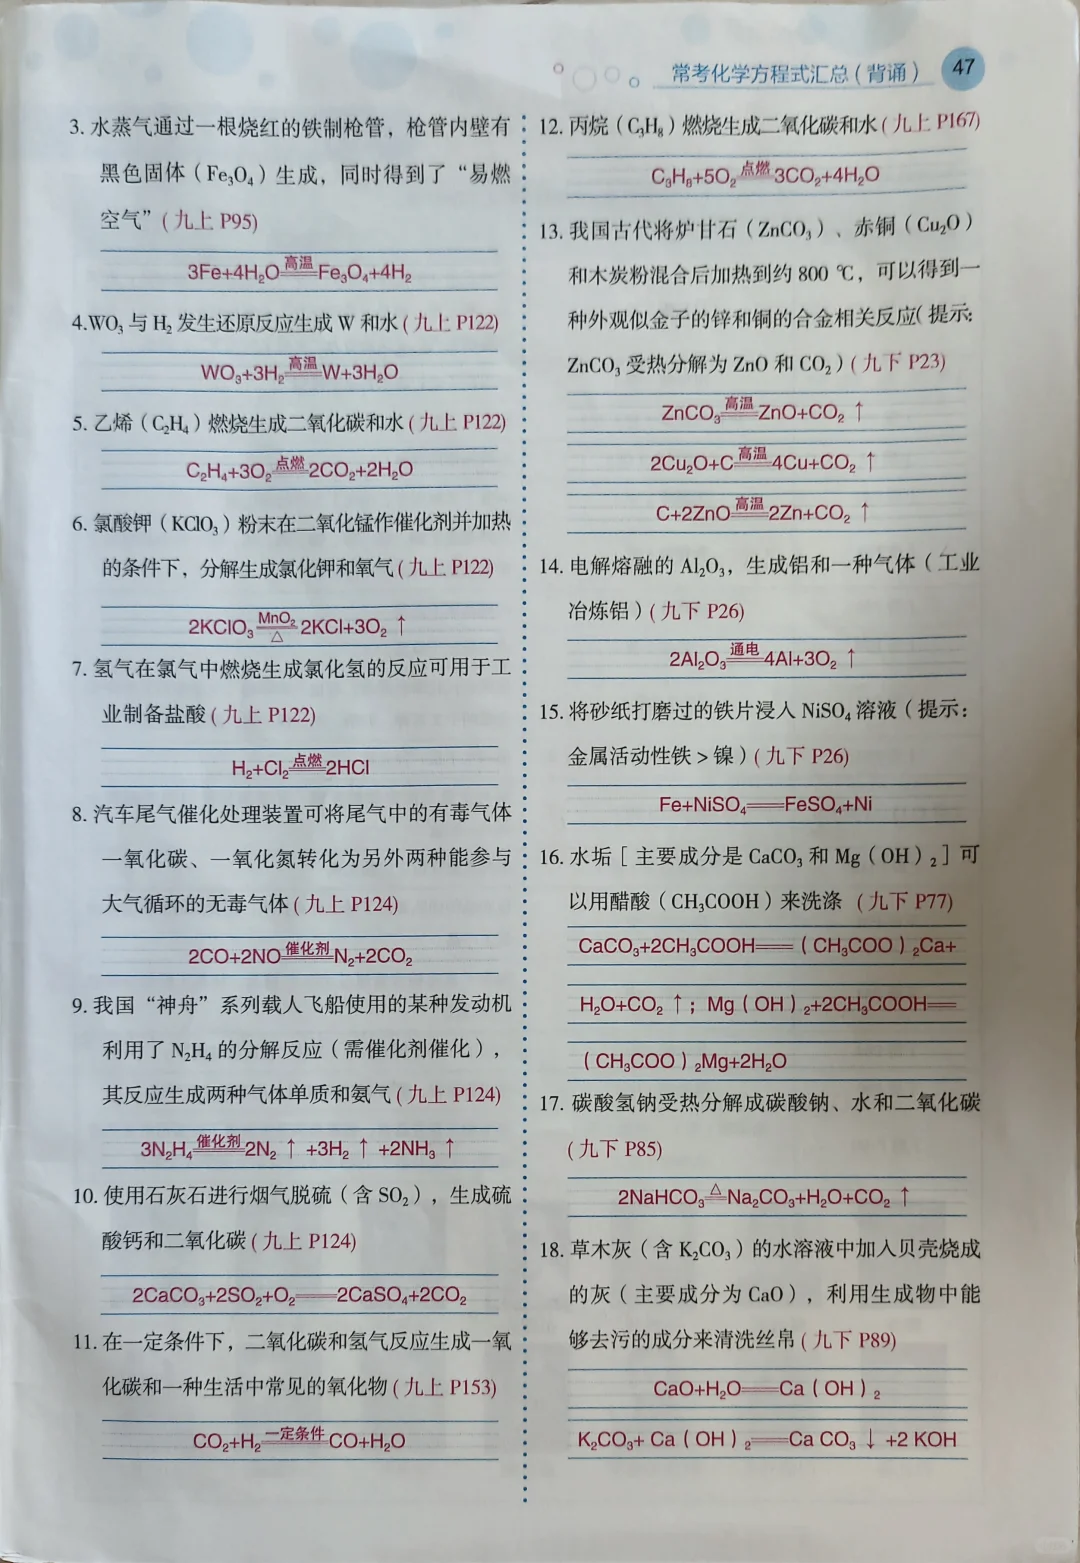 常考化学方程式汇总（背诵） 47
3. 水蒸气通过一根烧红的铁制枪管，枪管内壁有
黑色固体（Fe₃O₄）生成，同时得到了“易燃
空气”（九上 P95）
3Fe+4H₂O 高温 Fe₃O₄+4H₂
4.WO₃ 与 H₂ 发生还原反应生成 W 和水（九上 P122）
WO₃+3H₂ 高温 W+3H₂O
5. 乙烯（C₂H₄）燃烧生成二氧化碳和水（九上 P122）
C₂H₄+3O₂ 点燃 2CO₂+2H₂O
6. 氯酸钾（KClO₃）粉末在二氧化锰作催化剂并加热
的条件下，分解生成氯化钾和氧气（九上 P122）
2KClO₃ MnO₂ △ 2KCl+3O₂ ↑
7. 氢气在氯气中燃烧生成氯化氢的反应可用于工
业制备盐酸（九上 P122）
H₂+Cl₂ 点燃 2HCl
8. 汽车尾气催化处理装置可将尾气中的有毒气体
一氧化碳、一氧化氮转化为另外两种能参与
大气循环的无毒气体（九上 P124）
2CO+2NO 催化剂 N₂+2CO₂
9. 我国“神舟”系列载人飞船使用的某种发动机
利用了 N₂H₄ 的分解反应（需催化剂催化），
其反应生成两种气体单质和氨气（九上 P124）
3N₂H₄ 催化剂 2N₂ ↑ +3H₂ ↑ +2NH₃ ↑
10. 使用石灰石进行烟气脱硫（含 SO₂），生成硫
酸钙和二氧化碳（九上 P124）
2CaCO₃+2SO₂+O₂══2CaSO₄+2CO₂
11. 在一定条件下，二氧化碳和氢气反应生成一氧
化碳和一种生活中常见的氧化物（九上 P153）
CO₂+H₂ 一定条件 CO+H₂O
12. 丙烷（C₃H₈）燃烧生成二氧化碳和水（九上 P167）
C₃H₈+5O₂ 点燃 3CO₂+4H₂O
13. 我国古代将炉甘石（ZnCO₃）、赤铜（Cu₂O）
和木炭粉混合后加热到约 800 ℃，可以得到一
种外观似金子的锌和铜的合金相关反应（提示:
ZnCO₃ 受热分解为 ZnO 和 CO₂）（九下 P23）
ZnCO₃ 高温 ZnO+CO₂ ↑
2Cu₂O+C 高温 4Cu+CO₂ ↑
C+2ZnO 高温 2Zn+CO₂ ↑
14. 电解熔融的 Al₂O₃，生成铝和一种气体（工业
冶炼铝）（九下 P26）
2Al₂O₃ 通电 4Al+3O₂ ↑
15. 将砂纸打磨过的铁片浸入 NiSO₄ 溶液（提示：
金属活动性铁 > 镍）（九下 P26）
Fe+NiSO₄══FeSO₄+Ni
16. 水垢［主要成分是 CaCO₃ 和 Mg（OH）₂］可
以用醋酸（CH₃COOH）来洗涤（九下 P77）
CaCO₃+2CH₃COOH══（CH₃COO）₂Ca+
H₂O+CO₂ ↑；Mg（OH）₂+2CH₃COOH══
（CH₃COO）₂Mg+2H₂O
17. 碳酸氢钠受热分解成碳酸钠、水和二氧化碳
（九下 P85）
2NaHCO₃ △ Na₂CO₃+H₂O+CO₂ ↑
18. 草木灰（含 K₂CO₃）的水溶液中加入贝壳烧成
的灰（主要成分为 CaO），利用生成物中能
够去污的成分来清洗丝帛（九下 P89）
CaO+H₂O══Ca（OH）₂
K₂CO₃+ Ca（OH）₂══Ca CO₃ ↓ +2 KOH